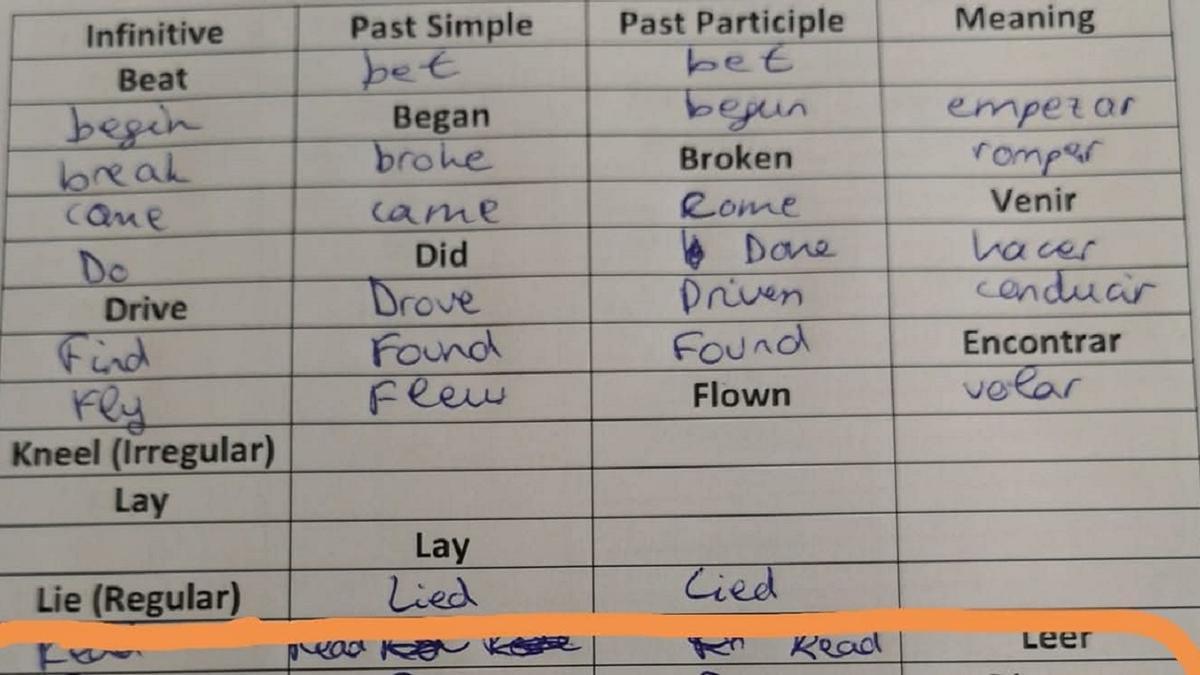 Infinitive Past Simple Past Participle Meaning
Beat bet bet
begin Began begun empezar
break broke Broken romper
come came come Venir
Do Did Done hacer
Drive Drove Driven conducir
Find Found Found Encontrar
Fly Flew Flown volar
Kneel (Irregular)
Lay
Lay
Lie (Regular) Lied Lied
Read Read Leer